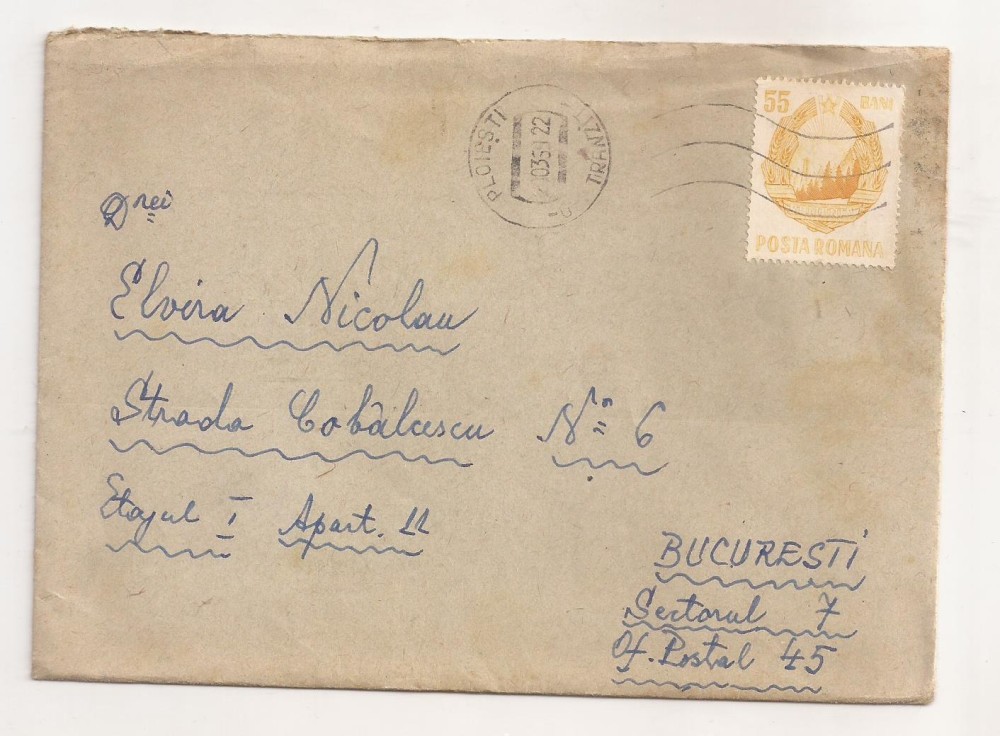 PLOIESTI
TRANZIT
22
55 BANI
POSTA ROMANA
Dnei
Elvira Nicolau
Strada Cobălcescu No 6
Etajul I Apart. 11
BUCURESTI
Sectorul 7
Of. Postal 45